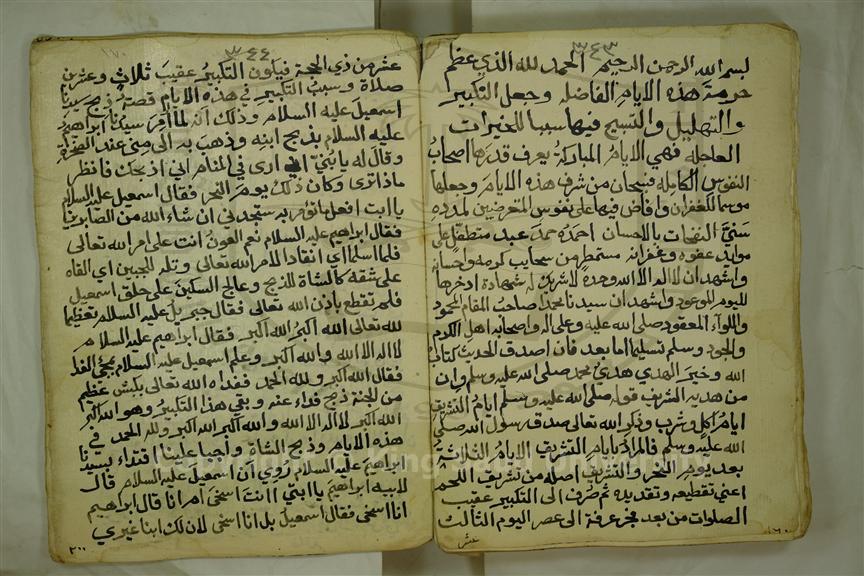 ٣٤٣
بسم الله الرحمن الرحيم الحمد لله الذي عظم
حرمة هذه الايام الفاضله وجعل التكبير
والتهليل والتسبيح فيها سببا للخيرات
العاجله فهي الايام المباركة يعرف قدرها اصحاب
النفوس الكامله فسبحان من شرف هذه الايام وجعلها
موسما للغفران وافاض فيها على نفوس المتعرضين لمدده
سني النفحات بالاحسان احمده حمد عبد متطفل على
موائد عفوه وغفرانه مستمطر من سحايب كرمه واحسانه
واشهد ان لا اله الا الله وحده لا شريك له شهادة ادخرها
لليوم الموعود واشهد ان سيدنا محمدا صاحب المقام المحمود
واللواء المعقود صلى الله عليه وعلى اله واصحابه اهل الكرم
والجود وسلم تسليما اما بعد فان اصدق الحديث كتاب
الله وخير الهدي هدي محمد صلى الله عليه وسلم وان
من هديه الشريف قوله صلى الله عليه وسلم ايام التشريق
ايام اكل وشرب وذكر الله تعالى صدق رسول الله صلى
الله عليه وسلم فالمراد بايام التشريق الايام الثلاثة
بعد يوم النحر والتشريق اصله من تشريق اللحم
اعني تقطيعه وتقديده ثم صرف الى التكبير عقيب
الصلوات من بعد فجر عرفة الى عصر اليوم الثالث
عشر
٣٤٤
عشر من ذي الحجة فيكون التكبير عقيب ثلاث وعشرين
صلاة وسبب التكبير في هذه الايام قصة ذبح سيدنا
اسمعيل عليه السلام وذلك انه لما امر سيدنا ابراهيم
عليه السلام بذبح ابنه وذهب به الى منى عند الصخرة
وقال له يا بني اني ارى في المنام اني اذبحك فانظر
ماذا ترى وكان ذلك يوم النحر فقال اسمعيل عليه السلام
يا ابت افعل ما تؤمر ستجدني ان شاء الله من الصابرين
فقال ابراهيم عليه السلام نعم العون انت على امر الله تعالى
فلما اسلما اي انقادا لامر الله تعالى وتله للجبين اي القاه
على شقه كالشاة للذبح وعالج السكين على حلق اسمعيل
فلم تقطع باذن الله تعالى فقال جبريل عليه السلام تعظيما
لله تعالى الله اكبر الله اكبر فقال ابراهيم عليه السلام
لا اله الا الله والله اكبر وعلم اسمعيل عليه السلام بمجئ الفدا
فقال الله اكبر ولله الحمد ففداه الله تعالى بكبش عظيم
من الجنة ذبح فداء عنه وبقي هذا التكبير وهو الله اكبر
الله اكبر لا اله الا الله والله اكبر الله اكبر ولله الحمد في
هذه الايام وذبح الشاة واجبا علينا اقتداء بسيدنا
ابراهيم عليه السلام روي ان اسمعيل عليه السلام قال
لابيه ابراهيم يا ابتي اانت اسخى ام انا قال ابراهيم
انا اسخى فقال اسمعيل بل انا اسخى لان لك ابنا غيري